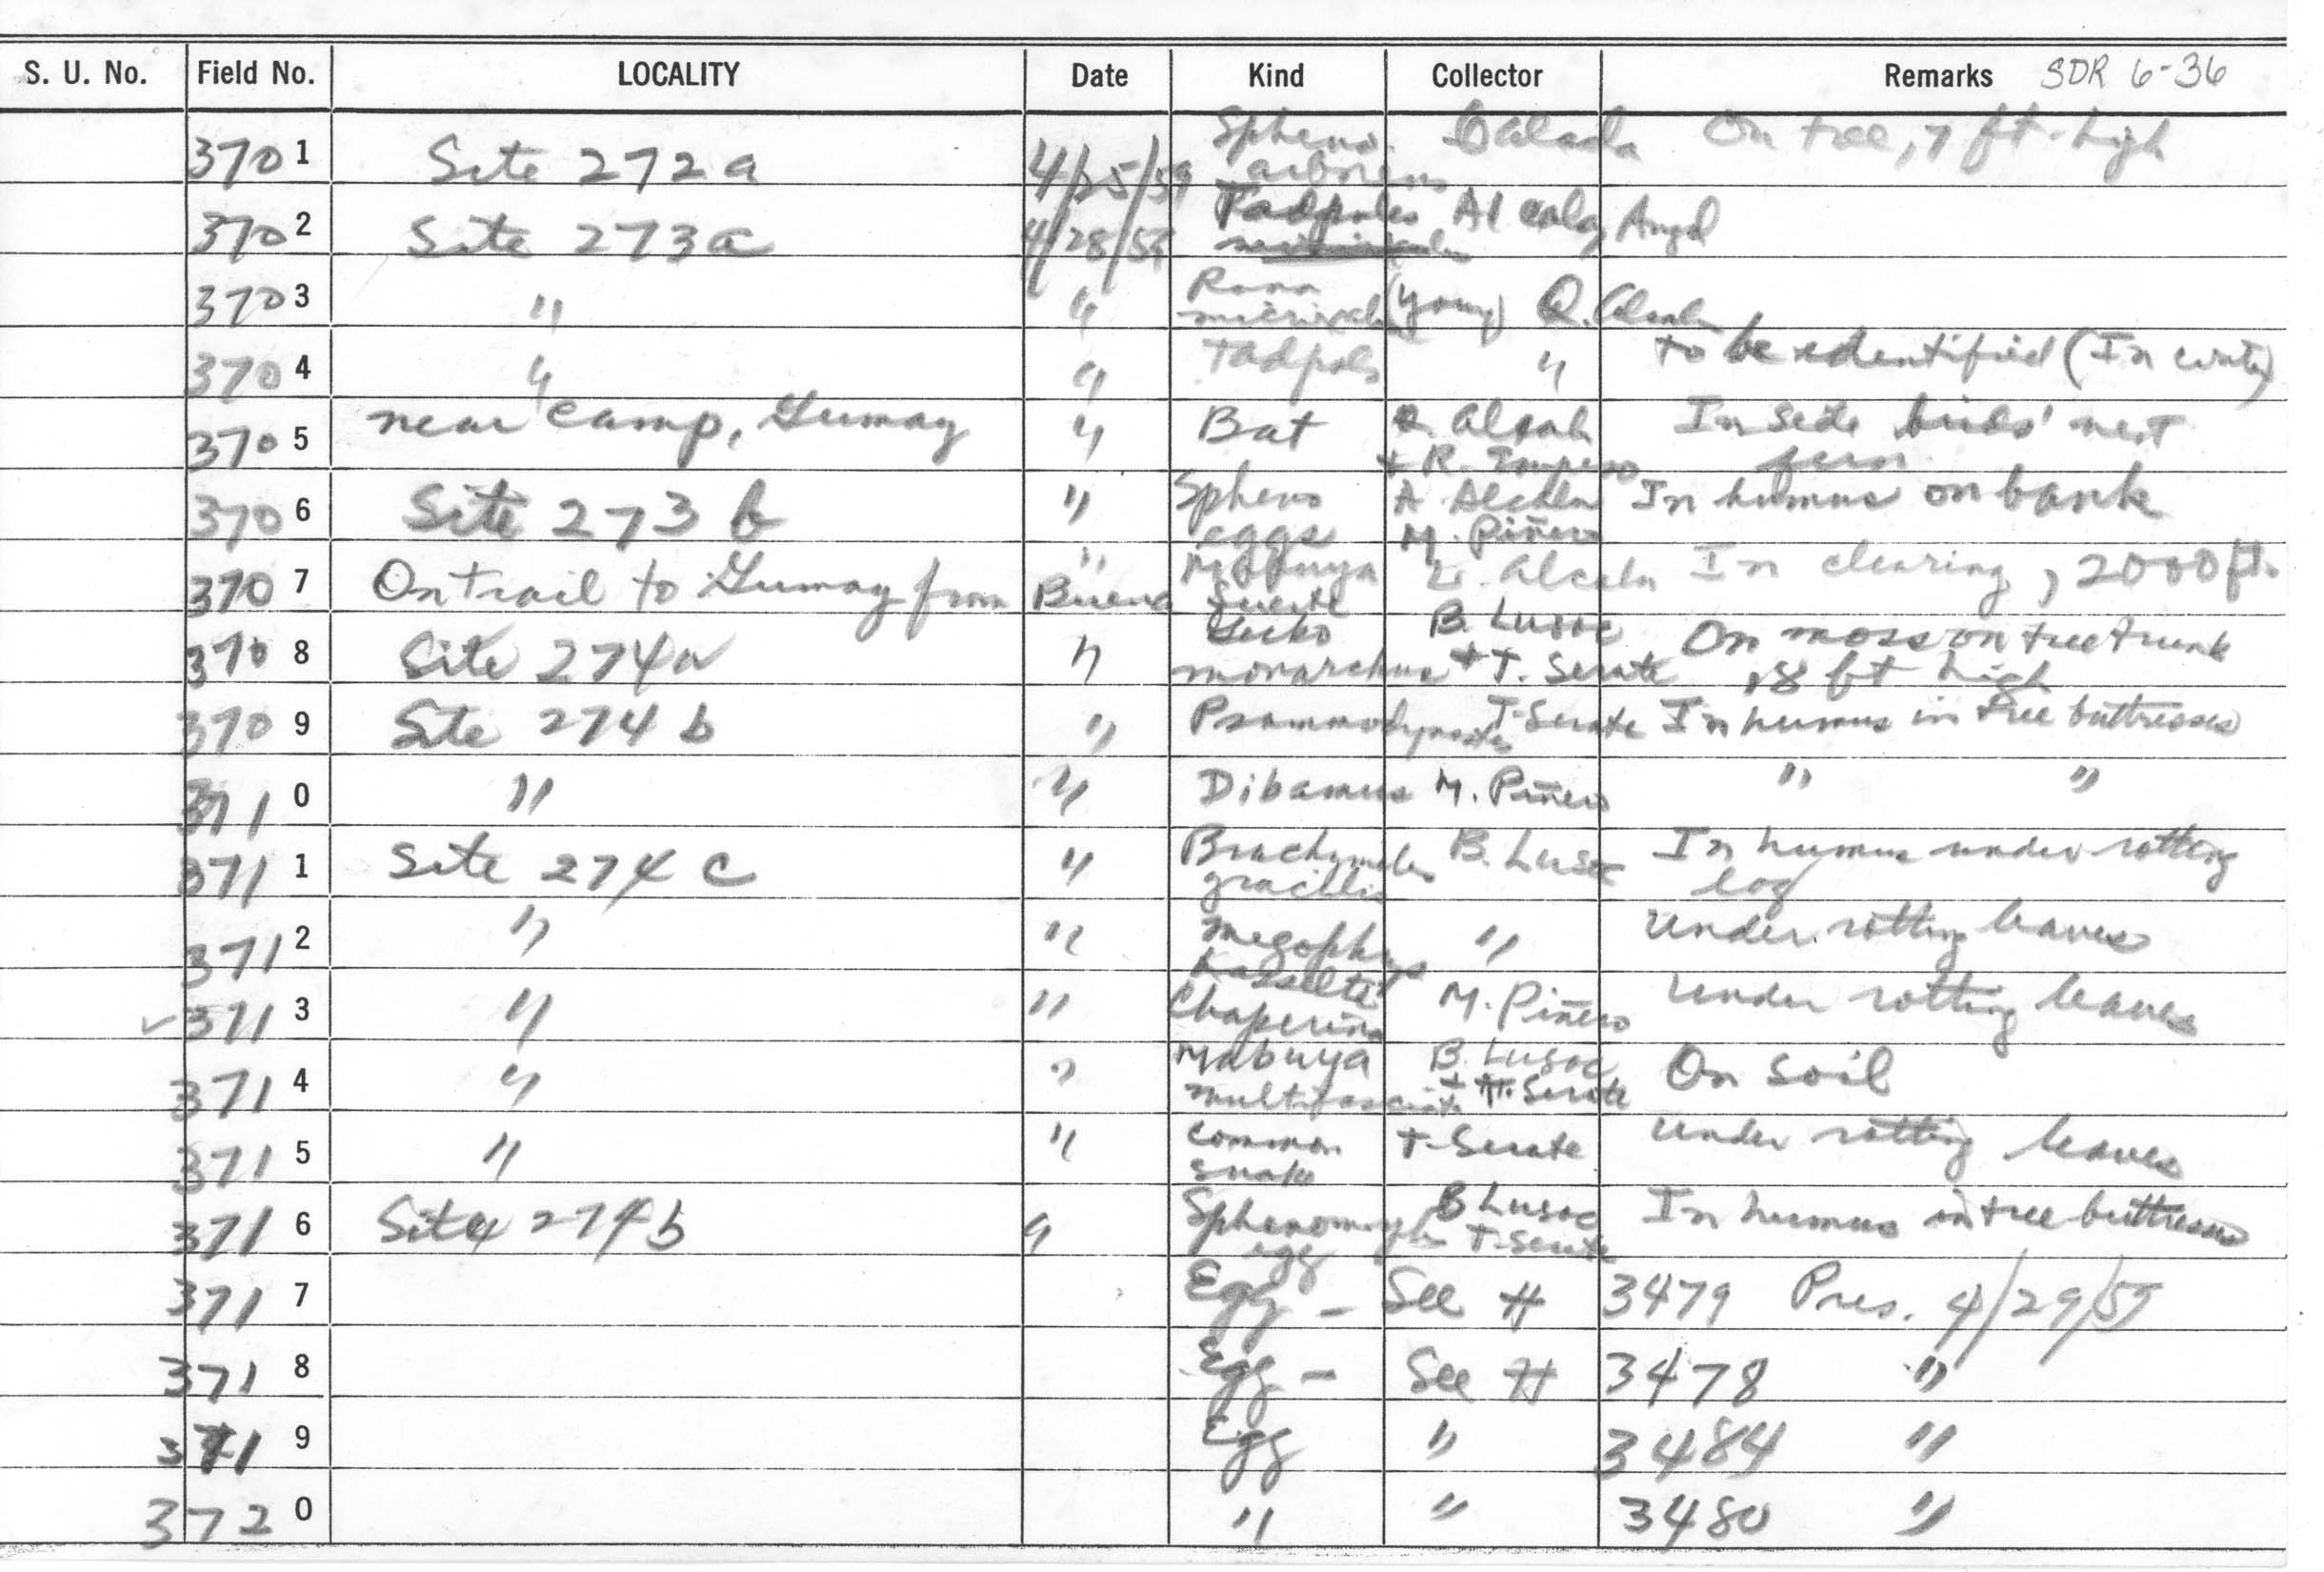 S. U. No. Field No. LOCALITY Date Kind Collector Remarks SDR 6-36
3701 Site 272a 4/25/59 Spheno. arboreus On tree, 7 ft. high
3702 Site 273a 4/28/59 Tadpoles Alcala, Angel
3703 " " Rana (young) Q. Alcala
3704 " " Tadpols " to be identified (In water)
3705 near camp, Gumay " Bat Q. Alcala + R. Empeso Inside birds' nest fern
3706 Site 273 b " Spheno eggs A Alcala M. Piñero In humus on bank
3707 On trail to Gumay from Buena Suerte " Mabuya L. Alcala In clearing, 2000 ft.
3708 Site 274a " Gecko monarchus B. Lusoc + T. Serate On moss on tree trunk 8 ft high
3709 Site 274 b " Psammodynastes T. Serate In humus in tree buttresses
3710 " " Dibamus M. Piñero " "
3711 Site 274 c " Brachymeles gracilis B. Lusoc In humus under rotting log
3712 " " Megophrys hasselti " Under rotting leaves
3713 " " Chaperina M. Piñero Under rotting leaves
3714 " " Mabuya multifasciata B. Lusoc + T. Serate On soil
3715 " " common snake T. Serate Under rotting leaves
3716 Site 274b " Sphenomorphus egg B Lusoc T. Serate In humus in tree buttresses
3717 Egg - See # 3479 Pres. 4/29/59
3718 Egg - See # 3478 "
3719 Egg " 3484 "
3720 " " 3480 "